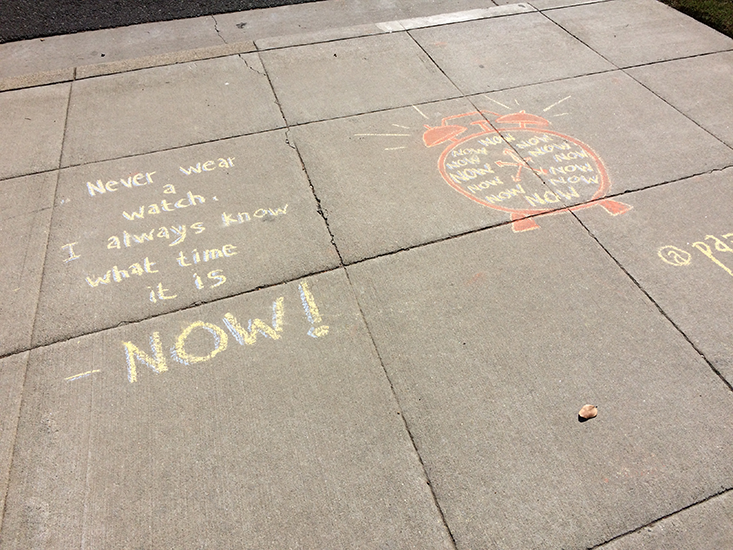 Never wear
a
watch.
I always know
what time
it is
– NOW!
NOW
NOW NOW
NOW NOW
NOW NOW
NOW NOW
NOW NOW
NOW